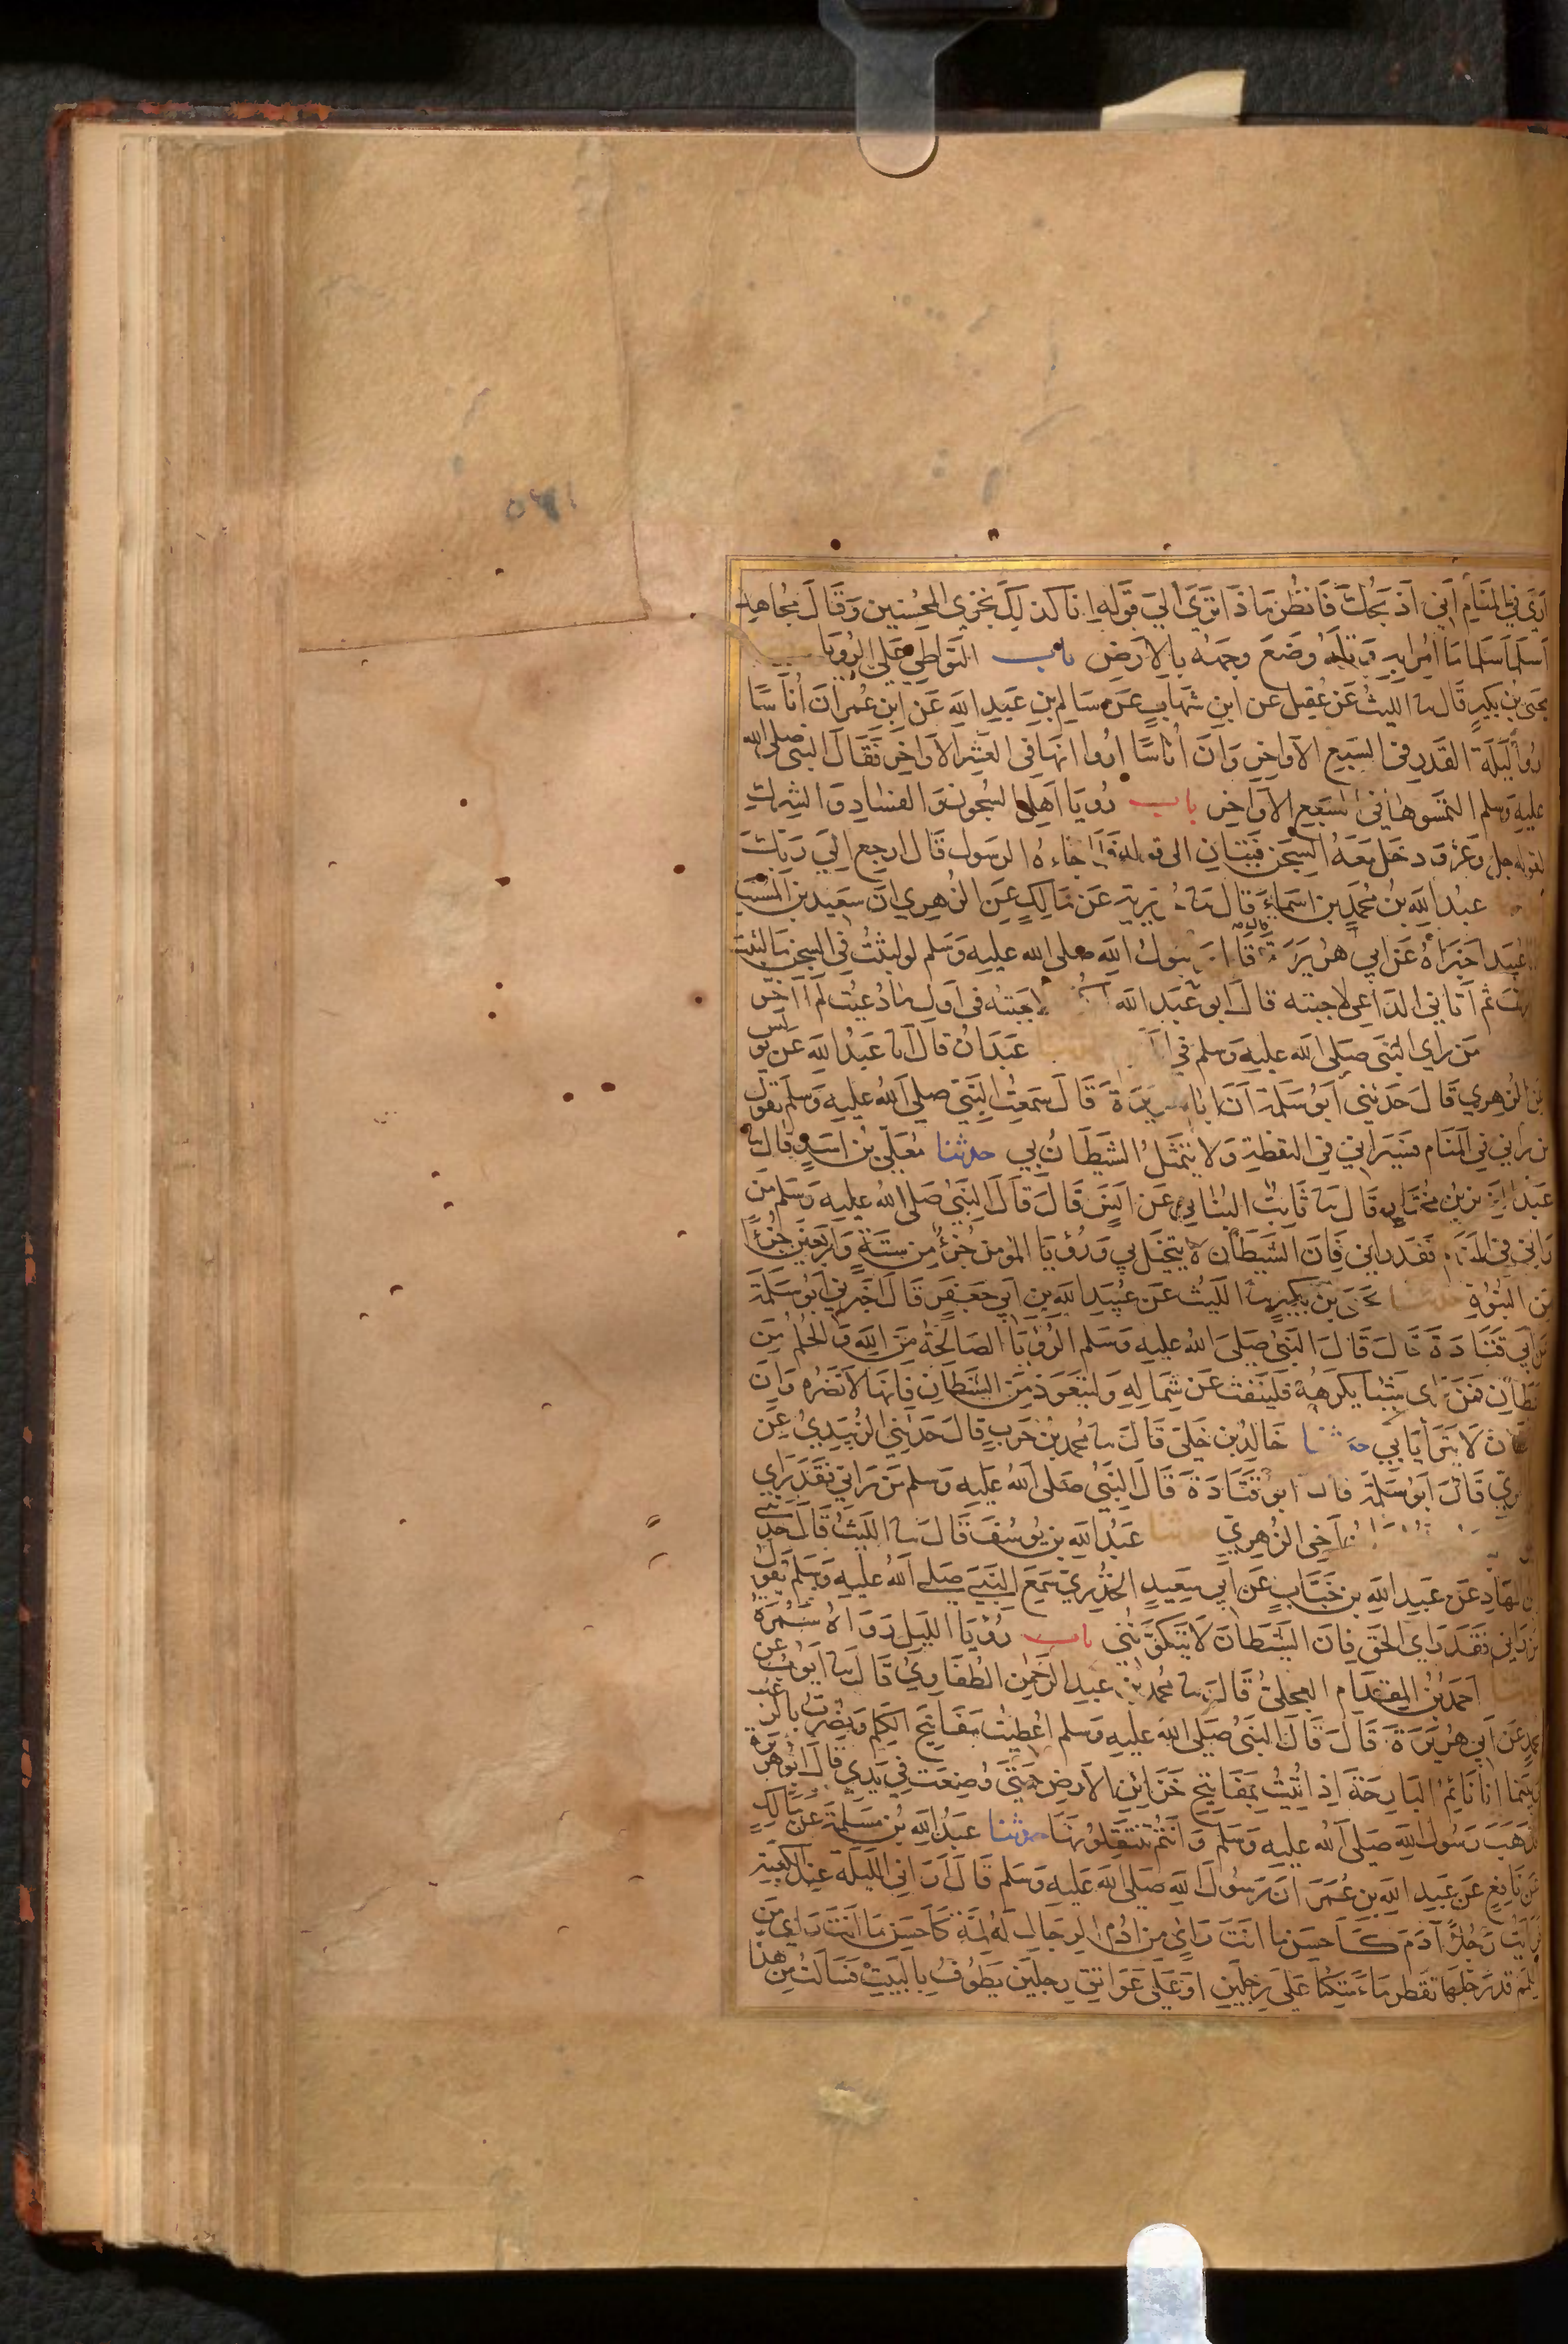 ارى في المنام أني اذبحك فانظر ماذا ترى الى قوله انا كذلك نجزي المحسنين وقال مجاهد
اسلما سلما ما امرا به وتله وضع وجهه بالارض باب التواطي على الرويا
يحيى بن بكير قال نا الليث عن عقيل عن ابن شهاب عن سالم بن عبد الله عن ابن عمر ان أناسا
اروا ليلة القدر في السبع الاواخر وان أناسا اروا انها في العشر الاواخر فقال النبي صلى الله
عليه وسلم التمسوها في السبع الاواخر باب رويا اهل السجون والفساد والشرك
لقوله جل وعز ودخل معه السجن فتيان الى قوله فلما جاءه الرسول قال ارجع الى ربك
عبد الله بن محمد بن اسماء قال نا جويرية عن مالك عن الزهري ان سعيد بن المسيب
وابا عبيد اخبراه عن ابي هريرة قال قال رسول الله صلى الله عليه وسلم لو لبثت في السجن ما لبث
ثم اتاني الداعي لاجبته قال ابو عبد الله لاجبته في اول ما دعيت لم أأخر
من راى النبي صلى الله عليه وسلم في عبدان قال انا عبد الله عن يونس
عن الزهري قال حدثني ابو سلمة ان ابا هريرة قال سمعت النبي صلى الله عليه وسلم يقول
من رآني في المنام فسيراني في اليقظة ولا يتمثل الشيطان بي حدثنا معلى بن اسد قال نا
عبد العزيز بن مختار قال نا ثابت البناني عن انس قال قال النبي صلى الله عليه وسلم من
رآني في المنام فقد رآني فان الشيطان لا يتخيل بي ورؤيا المؤمن جزء من ستة واربعين جزءا
من النبوة حدثنا يحيى بن بكير نا الليث عن عبيد الله بن ابي جعفر قال اخبرني ابو سلمة
عن ابي قتادة قال قال النبي صلى الله عليه وسلم الرؤيا الصالحة من الله والحلم من
الشيطان فمن راى شيئا يكرهه فلينفث عن شماله وليتعوذ من الشيطان فانها لا تضره وان
الشيطان لا يتراأيا بي حدثنا خالد بن خلي قال نا محمد بن حرب قال حدثني الزبيدي عن
الزهري قال ابو سلمة قال ابو قتادة قال النبي صلى الله عليه وسلم من رآني فقد راى
اخي الزهري حدثنا عبد الله بن يوسف قال نا الليث قال حدثني
ابن الهاد عن عبد الله بن خباب عن ابي سعيد الخدري سمع النبي صلى الله عليه وسلم يقول
من رآني فقد راى الحق فان الشيطان لا يتكونني باب رؤيا الليل رواه سمرة
حدثنا احمد بن المقدام العجلي قال نا محمد بن عبد الرحمن الطفاوي قال نا ايوب عن
محمد عن ابي هريرة قال قال النبي صلى الله عليه وسلم اعطيت مفاتيح الكلم ونصرت بالرعب
وبينما انا نائم البارحة اذ اتيت بمفاتيح خزائن الارض حتى وضعت في يدي قال ابو هريرة
فذهب رسول الله صلى الله عليه وسلم وانتم تنتقلونها حدثنا عبد الله بن مسلمة عن مالك
عن نافع عن عبد الله بن عمر ان رسول الله صلى الله عليه وسلم قال اراني الليلة عند الكعبة
فرايت رجلا آدم كاحسن ما انت راى من ادم الرجال له لمة كاحسن ما انت راى من
اللمم قد رجلها تقطر ماء متكئا على رجلين او على عواتق رجلين يطوف بالبيت فسالت من هذا